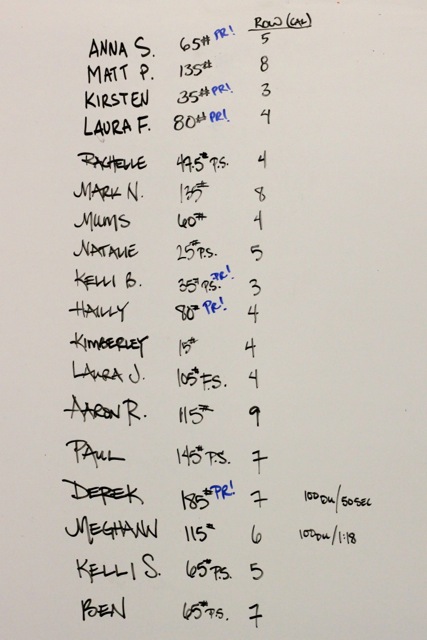 ROW (CAL)
ANNA S. 65# PR! 5
MATT P. 135# 8
KIRSTEN 35# PR! 3
LAURA F. 80# PR! 4
RACHELLE 47.5# P.S. 4
MARK N. 135# 8
MUMS 60# 4
NATALIE 25# P.S. 5
KELLI B. 35# P.S. PR! 3
HAILLY 80# PR! 4
KIMBERLEY 15# 4
LAURA J. 105# F.S. 4
AARON R. 115# 9
PAUL 145# P.S. 7
DEREK 185# PR! 7 100DU/50SEC
MEGHANN 115# 6 100DU/1:18
KELLI S. 65# P.S. 5
BEN 65# P.S. 7